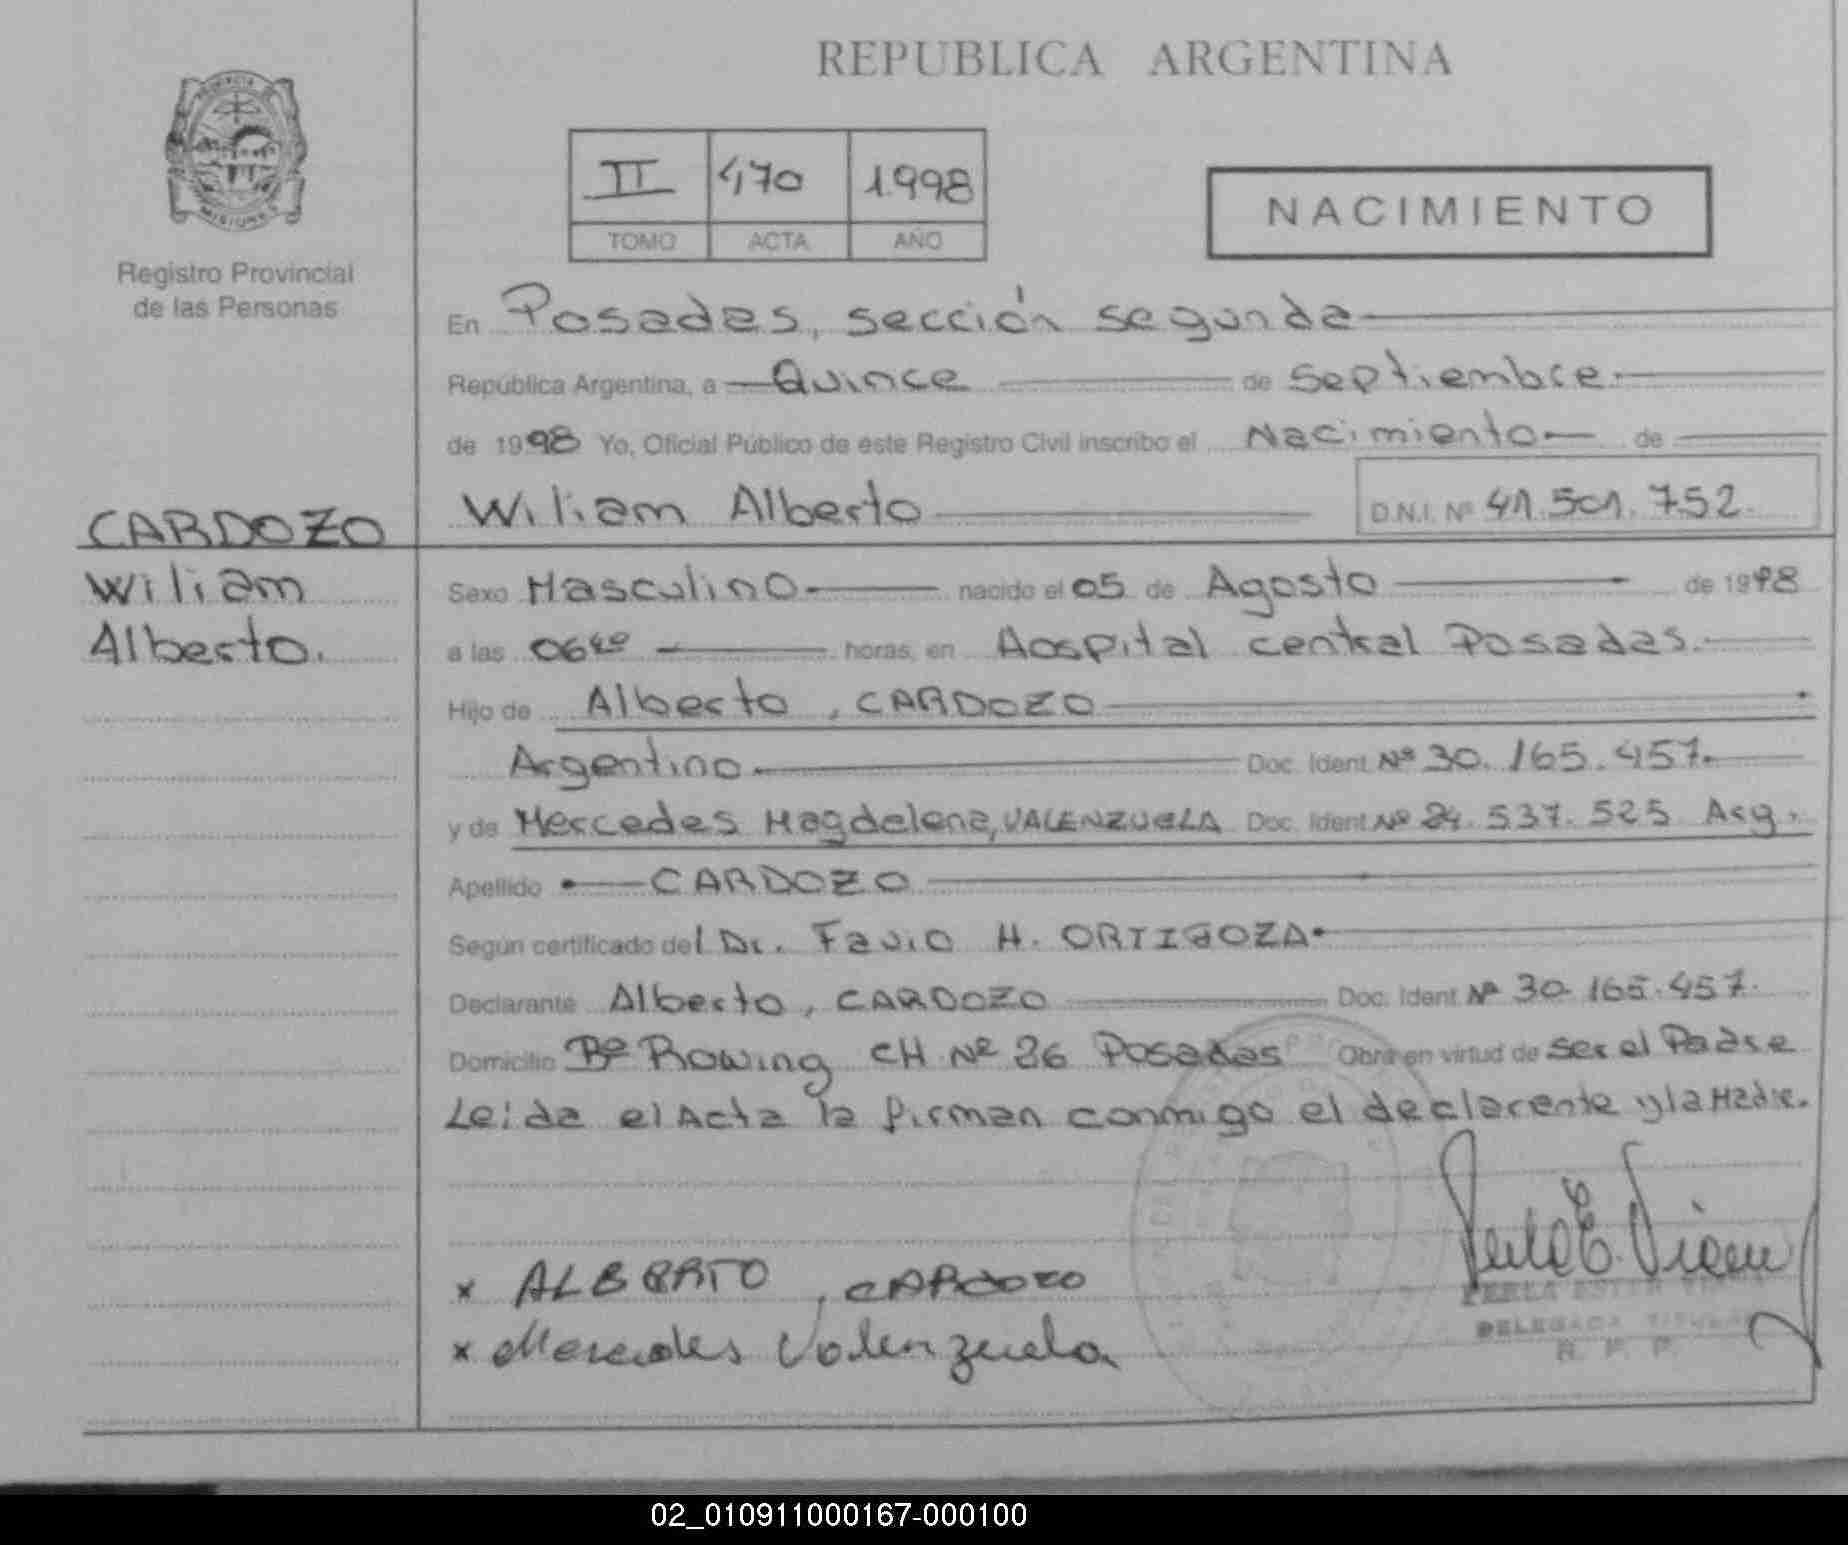 REPUBLICA ARGENTINA
PROVINCIA DE
MISIONES
Registro Provincial
de las Personas
II 470 1998
TOMO ACTA AÑO
NACIMIENTO
En Posadas, sección segunda
República Argentina, a Quince de Septiembre
de 1998 Yo, Oficial Público de este Registro Civil inscribo el Nacimiento de
Wiliam Alberto D.N.I. Nº 41.501.752.
CARDOZO
Wiliam
Alberto.
Sexo Masculino nacido el 05 de Agosto de 1998
a las 06 horas, en Hospital central Posadas.
Hijo de Alberto, CARDOZO
Argentino Doc. Ident. Nº 30.165.457.
y de Mercedes Magdalena, VALENZUELA Doc. Ident. Nº 24.537.525 Arg.
Apellido CARDOZO
Según certificado del Dr. Favio H. ORTIGOZA
Declarante Alberto, CARDOZO Doc. Ident. Nº 30.165.457.
Domicilio Bº Rowing CH Nº 26 Posadas Obra en virtud de ser el Padre
Leida el Acta la firman conmigo el declarente y la Madre.
x ALBERTO, CARDOZO
x Mercedes Valenzuela
PERLA ESTER
DELEGADA TITULAR
R. P. P.
02_010911000167-000100